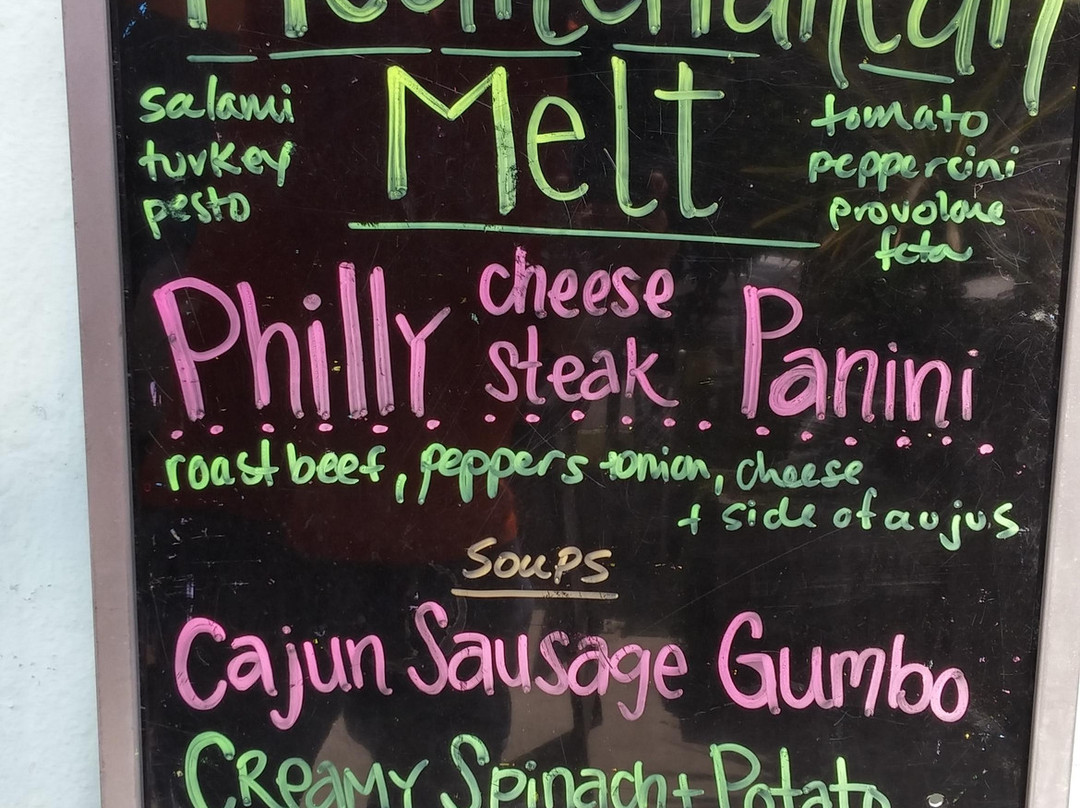 Mediterranean
Melt
salami
turkey
pesto
tomato
peppercini
provolone
feta
Philly cheese steak Panini
roast beef, peppers + onion, cheese
+ side of au jus
Soups
Cajun Sausage Gumbo
Creamy Spinach + Potato